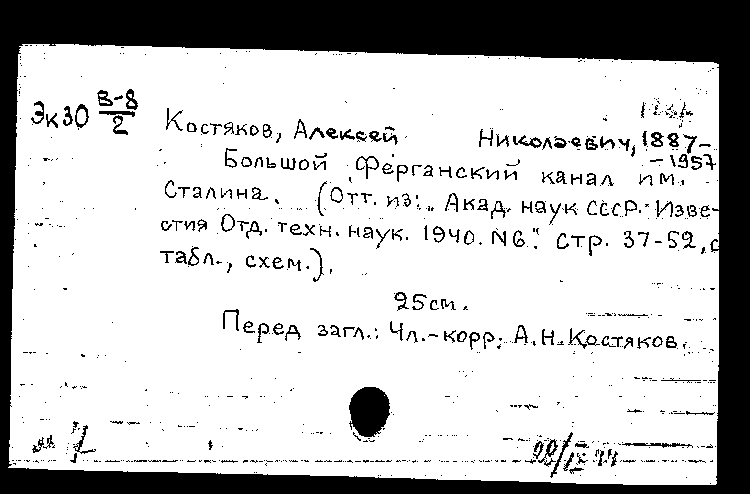 Эк30 В-8/2
Костяков, Алексей Николаевич, 1887-
-1957
Большой Ферганский канал им.
Сталина. (Отт. из: „Акад. наук СССР. Изве-
стия Отд. техн. наук. 1940. N6." стр. 37-52, с
табл., схем.).
25см.
Перед загл.: Чл.-корр. А.Н. Костяков.
28/IX 44